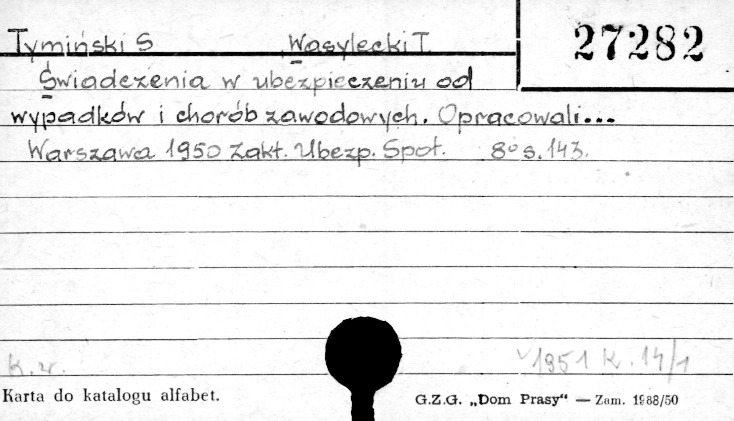 Tymiński S Wasylecki T. 27282
Świadczenia w ubezpieczeniu od
wypadków i chorób zawodowych. Opracowali...
Warszawa 1950 Zakt. Ubezp. Społ. 8° s. 143.
K. w. 1951 K. 14/1
Karta do katalogu alfabet. G.Z.G. „Dom Prasy" — Zam. 1988/50